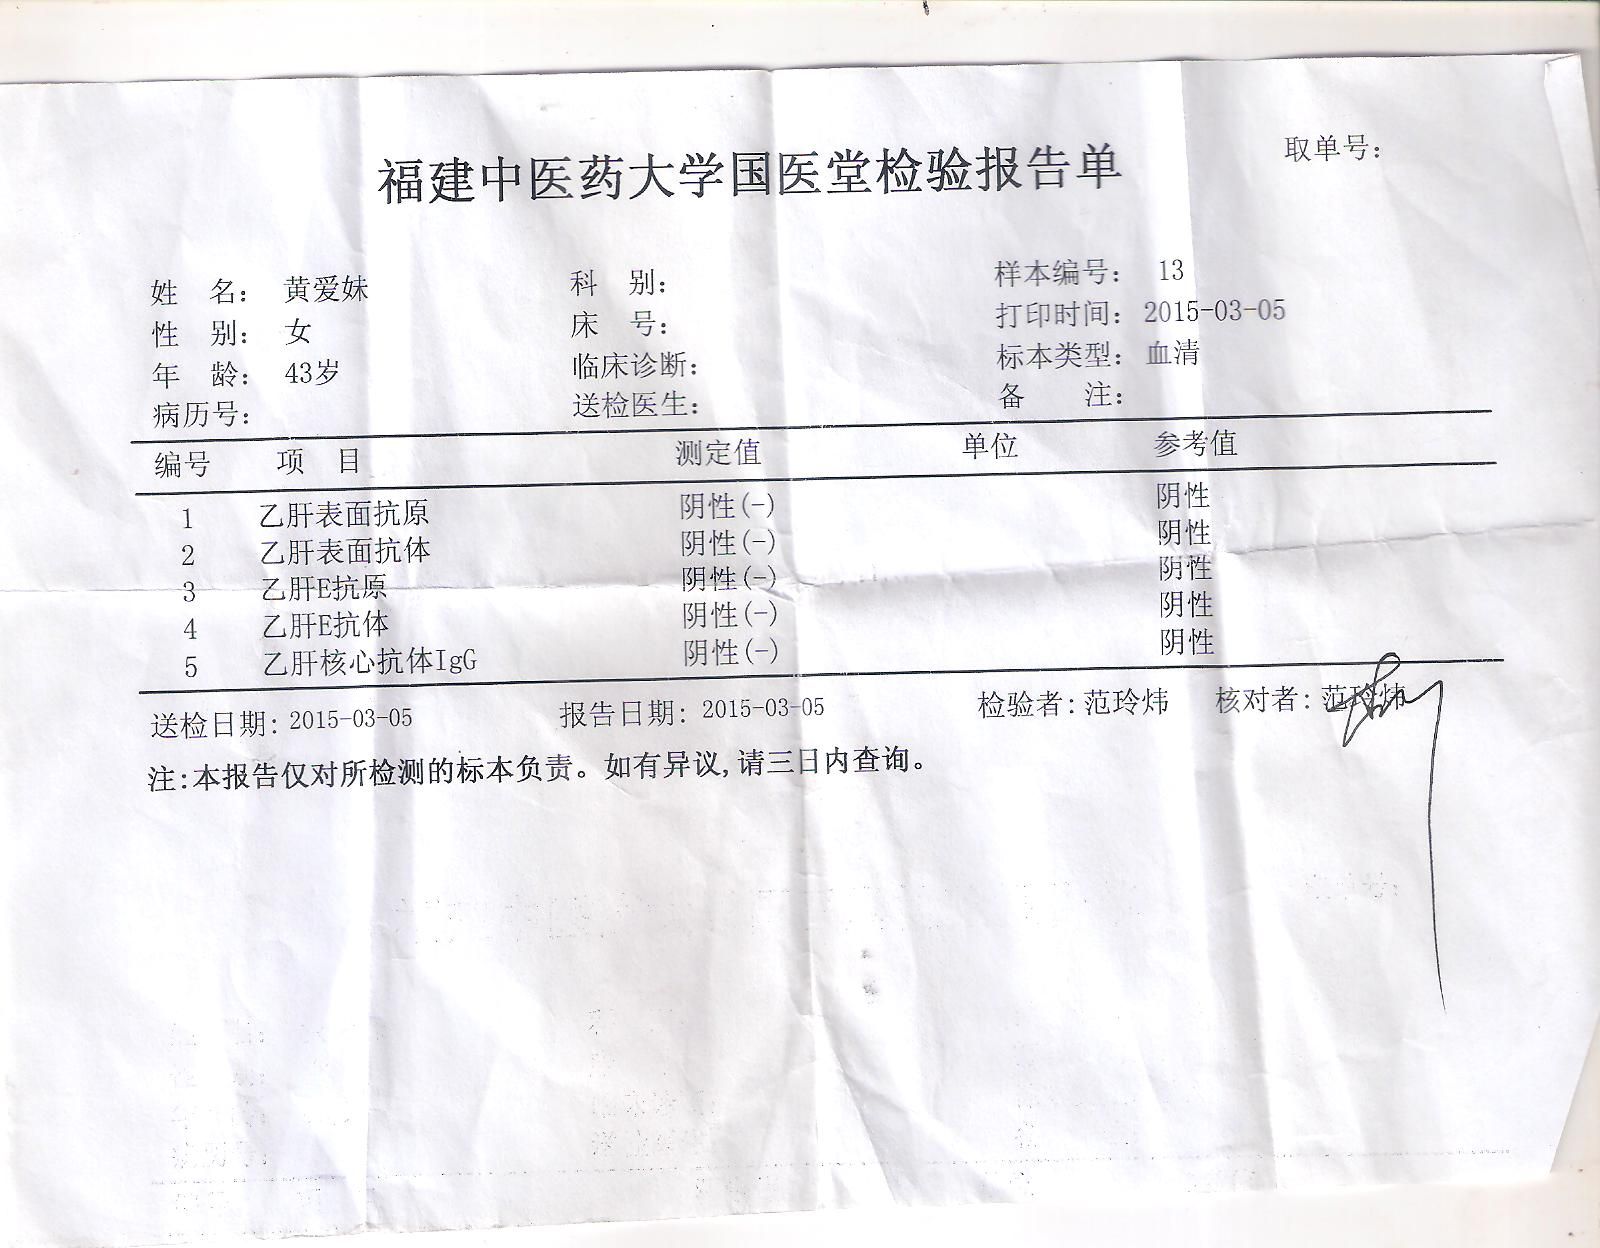 取单号：
福建中医药大学国医堂检验报告单
姓 名： 黄爱妹 科 别： 样本编号： 13
性 别： 女 床 号： 打印时间： 2015-03-05
年 龄： 43岁 临床诊断： 标本类型： 血清
病历号： 送检医生： 备 注：
编号 项 目 测定值 单位 参考值
1 乙肝表面抗原 阴性(-) 阴性
2 乙肝表面抗体 阴性(-) 阴性
3 乙肝E抗原 阴性(-) 阴性
4 乙肝E抗体 阴性(-) 阴性
5 乙肝核心抗体IgG 阴性(-) 阴性
送检日期：2015-03-05 报告日期：2015-03-05 检验者：范玲炜 核对者：范玲炜
注：本报告仅对所检测的标本负责。如有异议，请三日内查询。